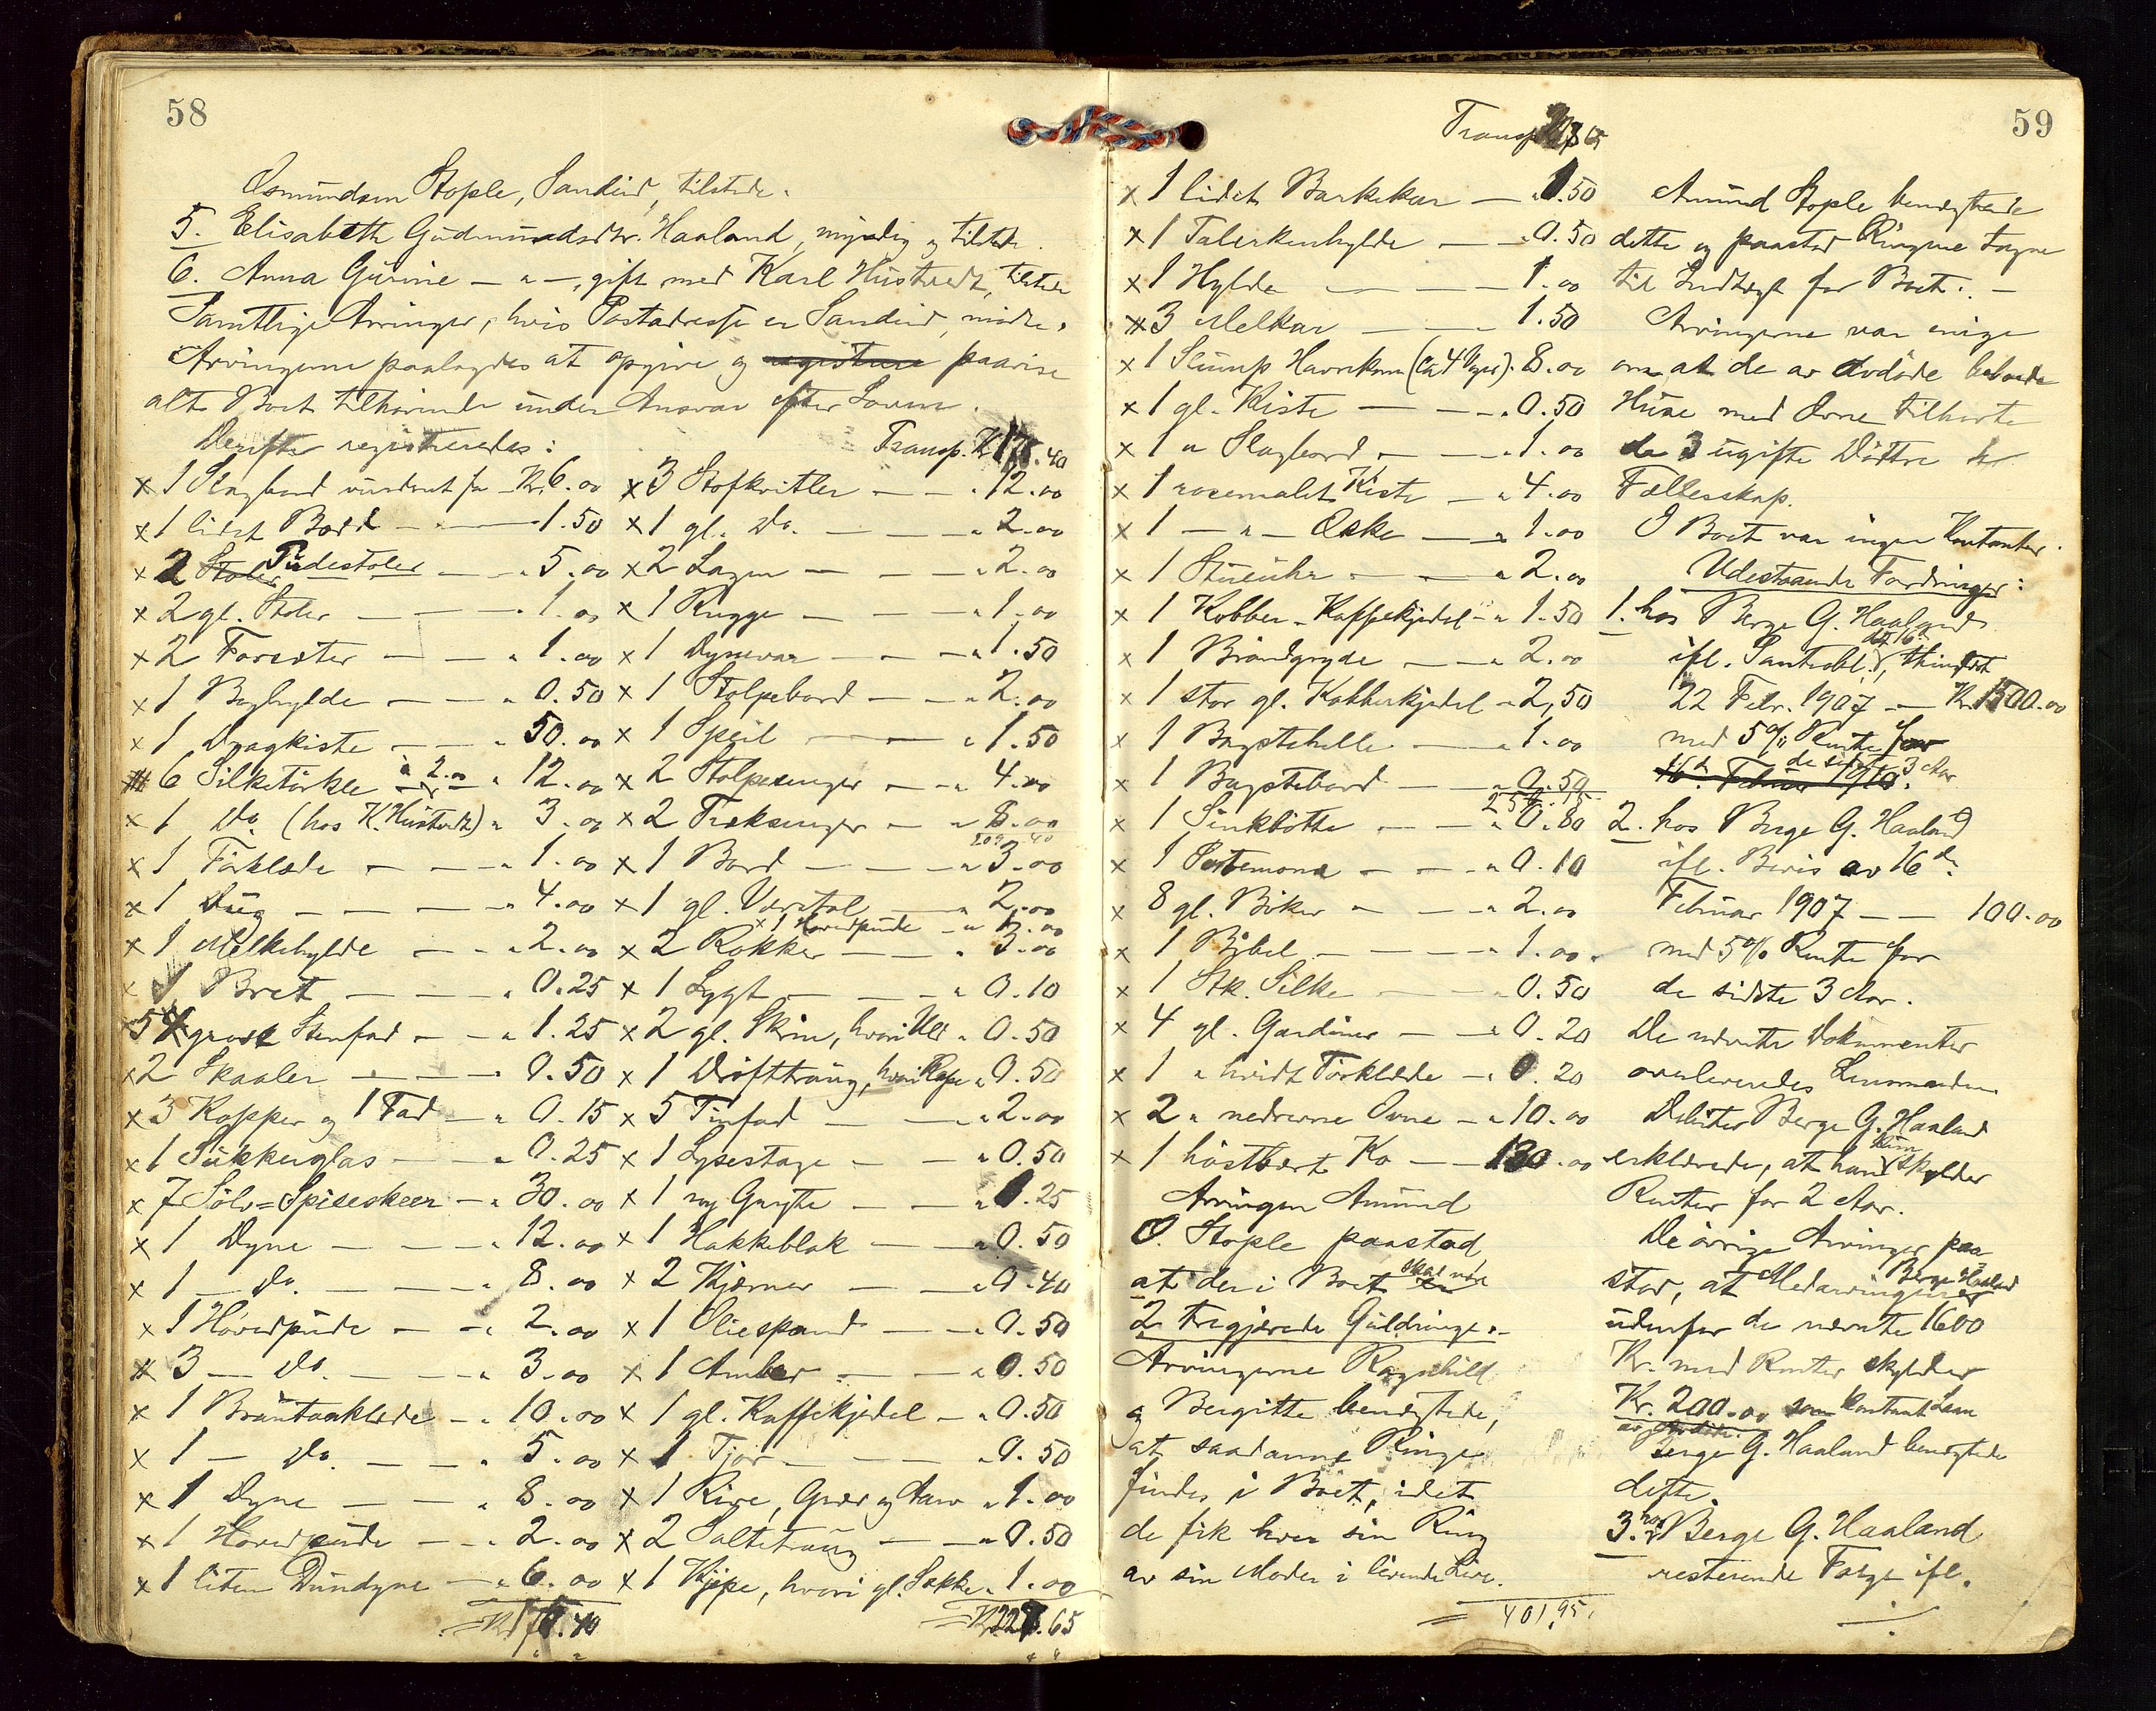 58
Osmundsen Stople, Sandeid, tilstede.
5. Elisabeth Gudmundsdtr. Haaland, myndig og tilstede.
6. Anna Gurine — " —, gift med Karl Hustvedt, tilstede
Samtlige Arvinger, hvis Postadresse er Sandeid, mødte.
Arvingerne paalagdes at opgive og paavise
alt Boet tilhørende under Ansvar efter Loven.
Derefter registreredes:
x 1 Slagbord vurderet for Kr. 6.00
x 1 lidet Bord — 1.50
x 2 Pudestoler — " 5.00
x 2 gl. Stoler — " 1.00
x 2 — " 1.00
x 1 Boghylde — " 0.50
x 1 Dragkiste — " 50.00
x 6 Silketørkle à 2.00 " 12.00
x 1 Do. (hos K. Hustvedt) " 3.00
x 1 Forklæde — " 1.00
x 1 Dug — " 4.00
x 1 Melkehylde — " 2.00
x 1 Bret — " 0.25
x 5 Stenfad — " 1.25
x 2 Skaaler — 0.50
x 3 Kopper og 1 Fad — " 0.15
x 1 Sukkerglas — " 0.25
x 7 Sølv=Spiseskeer — " 30.00
x 1 Dyne — " 12.00
x 1 — Do. — " 8.00
x 1 Hovedpude — " 2.00
x 3 — Do. — " 3.00
x 1 — " 10.00
x 1 — Do. — " 5.00
x 1 Dyne — " 8.00
x 1 Hovedpude — " 2.00
x 1 liten Dundyne — " 6.00
Transp. Kr.
x 3 Stofkvitler — " 12.00
x 1 gl. Do. — " 2.00
x 2 Lagen — " 2.00
x 1 Rugge — " 1.00
x 1 Dynevar — " 1.50
x 1 Stolpebord — " 2.00
x 1 Speil — " 1.50
x 2 Stolpesenger — " 4.00
x 2 Træksenger — "
x 1 Bord — " 3.00
x 1 gl. Vævstol — " 2.00
x 1 Hovedpude — "
x 2 Rokker — " 3.00
x 1 Lygt — " 0.10
x 2 gl. Skrin, hvori Uld " 0.50
x 1 Drifttraug, " 0.50
x 5 Tinfad — " 2.00
x 1 Lysestage — " 0.50
x 1 ny Gryte — "
x 1 Hakkeblok — " 0.50
x 2 Kjerner — " 0.40
x 1 Oliespand — " 0.50
x 1 Amber — " 0.50
x 1 gl. Kaffekjedel — " 0.50
x 1 Tjor — " 0.50
x 1 Kive, — " 1.00
x 2 Saltetraug — " 0.50
x 1 Kjipe, hvori gl. Sække " 1.00
59
Transp.
x 1 lidet Barkekar —
x 1 Talerkenhylde — " 0.50
x 1 Hylde — 1.00
x 3 Melkar — 1.50
x 1 Slump Havrekorn (ca 4 Voger). 8.00
x 1 gl. Kiste — " 0.50
x 1 " Slagbord — " 1.00
x 1 rosemalet Kiste — " 4.00
x 1 — " — Æske — " 1.00
x 1 Stueuhr — " 2.00
x 1 Kobber-Kaffekjedel — " 1.50
x 1 Brændgryde — " 2.00
x 1 stor gl. Kobberkjedel — 2,50
x 1 Bagstehelle — " 1.00
x 1 Bagstebord — " 0.50
x 1 Sinkbøtte — " 0.80
x 1 — " 0.10
x 8 gl. Bøker — " 2.00
x 1 Bibel — " 1.00
x 1 Stk. Silke — 0.50
x 4 gl. Gardiner — " 0.20
x 1 " hvidt Forklæde — " 0.20
x 2 " nedrevne Ovne — " 10.00
x 1 høstbært Ko — 130.00
Arvingen Amund
O. Stople paastod
at der i Boet skal være
2 tregjerede Guldringe.—
Arvingerne Ragnhild
og Bergitte benegtede,
at saadanne Ringe
findes i Boet, idet
de fik hver sin Ring
av sin Moder i levende Live.
= 401,95
Amund Stople benegtede
dette og paastod Ringene tagne
til Indtægt for Boet. —
Arvingerne var enige
om at de av avdøde beboede
Huse med Ovne tilhørte
de 3 ugifte Døttre i
Fællesskap.
I Boet var ingen Kontanter.
Udestaaende Fordringer:
1. hos Berge G. Haaland
ifl. Panteobl. thinglæst
22 Febr. 1907 — Kr. 1500.00
med 5% Rente for
de sidste 3 Aar
16de Februar 1910.
2. hos Berge G. Haaland
ifl. Bevis av 16de
Februar 1907 — 100.00
med 5% Rente for
de sidste 3 Aar.
De nævnte Dokumenter
overleveredes Lensmanden
Debitor Berge G. Haaland
erklærede, at han kun skylder
Renter for 2 Aar.
De øvrige Arvinger paa
staar, at Medarvingen Berge Haaland
udenfor de nævnte 1600
Kr. med Renter skylder
Kr. 200.00 som kontant Laan
av avdøde.
Berge G. Haaland benegtede
dette.
3. hos Berge G. Haaland
resterende Følge ifl.